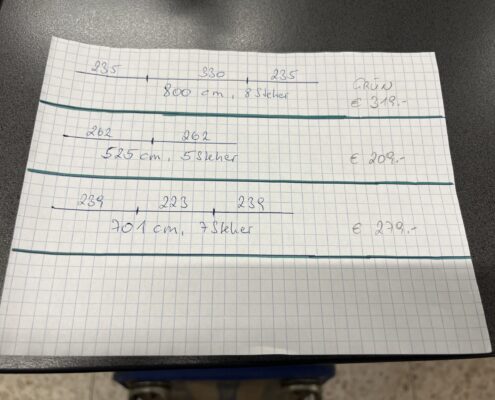 235 330 235
800 cm, 8 Steher
GRÜN
€ 319.-
262 262
525 cm, 5 Steher
€ 209.-
239 223 239
701 cm, 7 Steher
€ 279.-